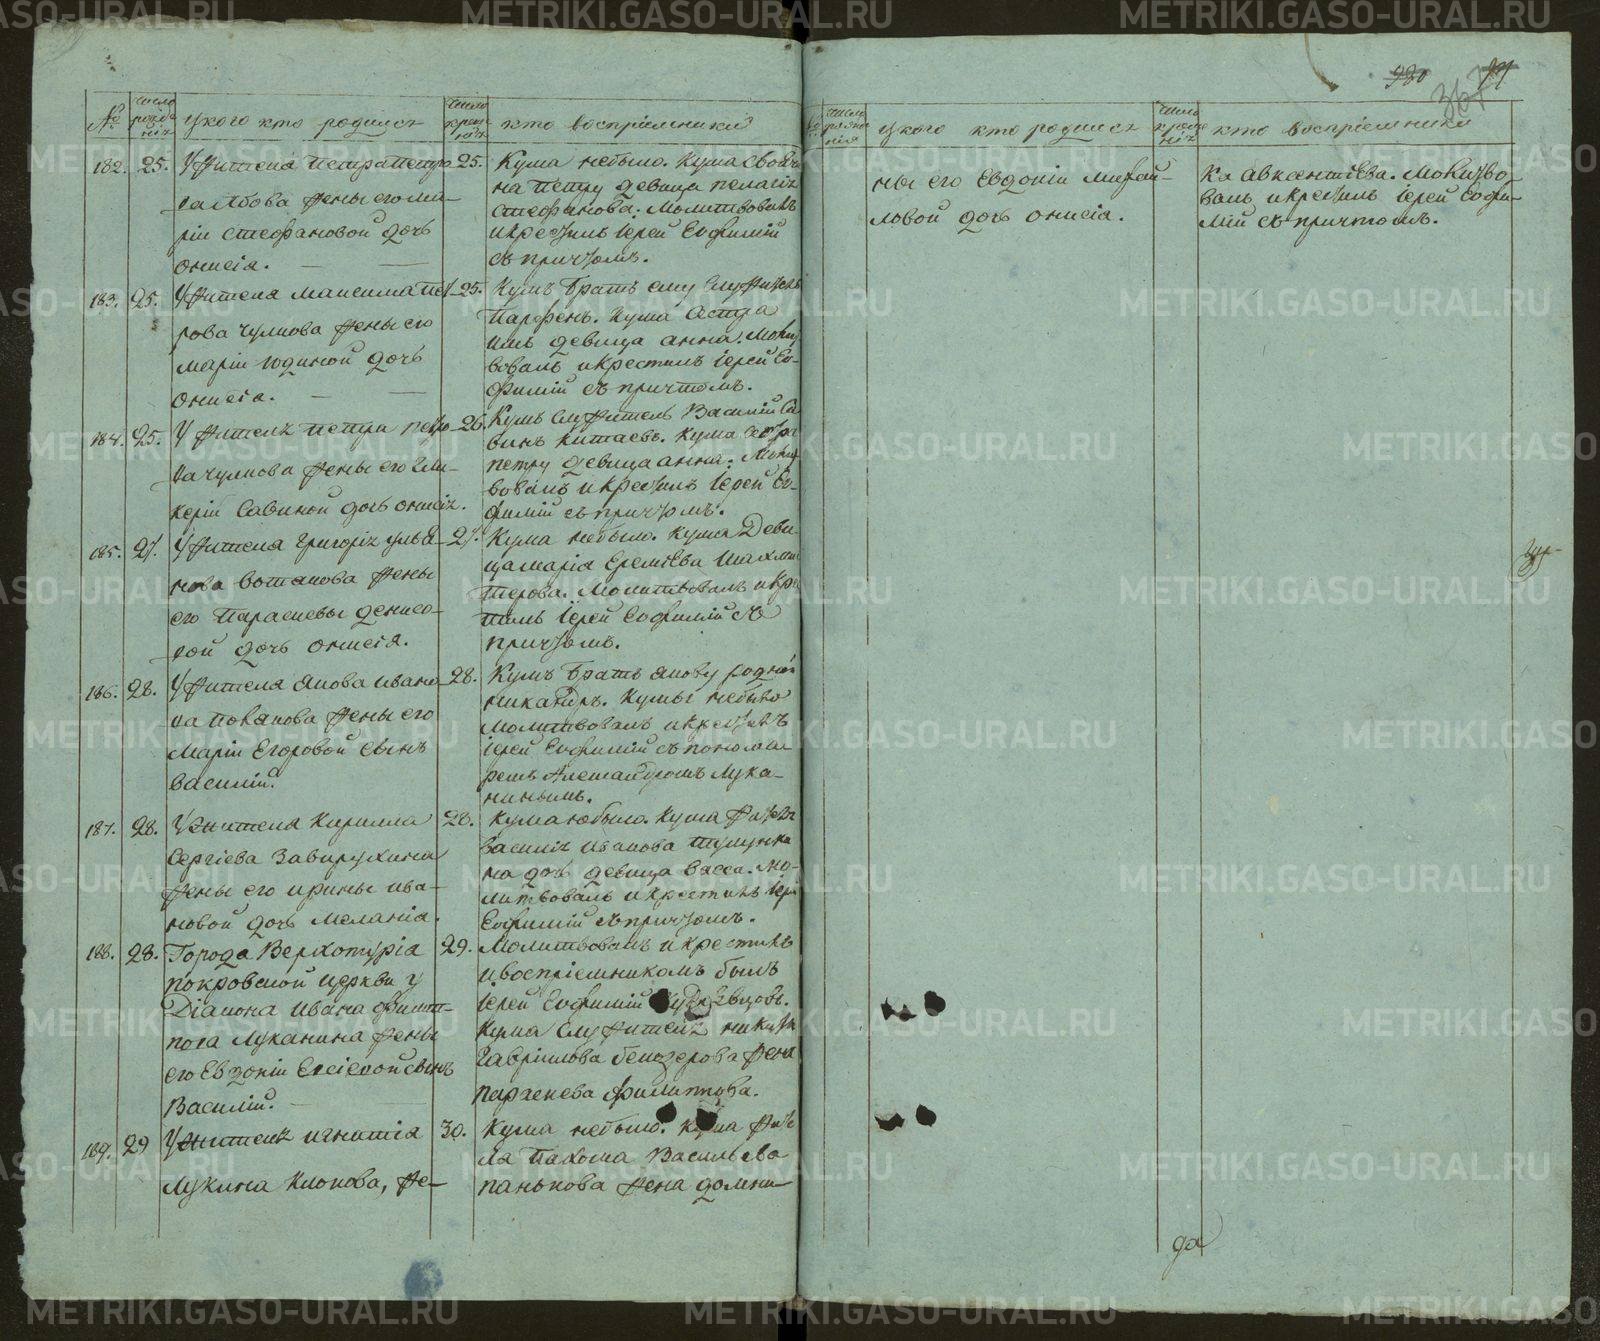 №
число рожденiя
у кого кто родился
число крещенiя
кто воспрiемники
182. 25. У жителя петра петро
ва жены его ма-
рiи стефановой дочь
онисiя.
25. Кума небыло. Кума своячи
на петру девица пелагiя
стефанова. Молитвовалъ
и крестилъ Iерей Eвфимiй
съ причтомъ.
183. 25. У жителя максима пет
рова чулкова жены его
марiи юдиной дочь
онисiя.
25. Кумъ братъ ему служитель
Парфенъ. Кума сестра
ихъ девица анна. Молит
вовалъ и крестилъ iерей Ев-
фимiй съ причтомъ.
184. 25. У жителя петра петро
ва чулкова жены его гли-
керiи Савиной дочь онисiя.
26. Кумъ служитель Василiй Са
винъ китаевъ. кума сестра
петру девица анна. Молит
вовалъ и крестилъ Iерей Ев-
фимiй съ причтомъ.
185. 27. У жителя григорiя улья
нова вотакова жены
его Параскевы денисо-
вой дочь онисiя.
27. Кума небыло. кума Деви
ца марiя Еремѣева Шахма
терова. Молитвовалъ и кре
тилъ Iерей Евфимiй съ
причтомъ.
186. 28. У жителя якова ивано
ва жены его
Марiи Егоровой сынъ
василiй.
28. Кумъ братъ якову родной
никандръ. Кумы небыло
молитвовалъ и крестилъ
iерей Евфимiй съ понома
ремъ Александромъ Лука-
нинымъ.
187. 28. У жителя Кирилла
Сергiева Завирухина
жены его ирины ива-
новой дочь меланiя.
28. Кума небыло. Кума жителя
василiя иванова
на дочь девица васса. Мо-
литвовалъ и крестилъ Iерей
Евфимiй съ причтомъ.
188. 28. Города Верхотурiя
покровской церкви у
Дiакона ивана филип-
пова Луканина жены
его Евдокiи Елисiевой сынъ
Василiй.
29. Молитвовалъ и крестилъ
и воспрiемникомъ былъ
iерей Евфимiй
Кума служителя никиты
гаврилова белозерова жена
параскева филиппова.
189. 29 У жителя игнатiя
лукина клокова, же-
30. Кума небыло. Кума жите
ля Пахома Васильева
панькова жена домни-
380
367
число рожденiя
у кого кто родился
число крещенiя
кто воспрiемники
ны его Евдокiи михай-
ловой дочь онисiя.
ка авксентiева. Молитво-
валъ и крестилъ iерей Евфи-
мiй съ причтомъ.